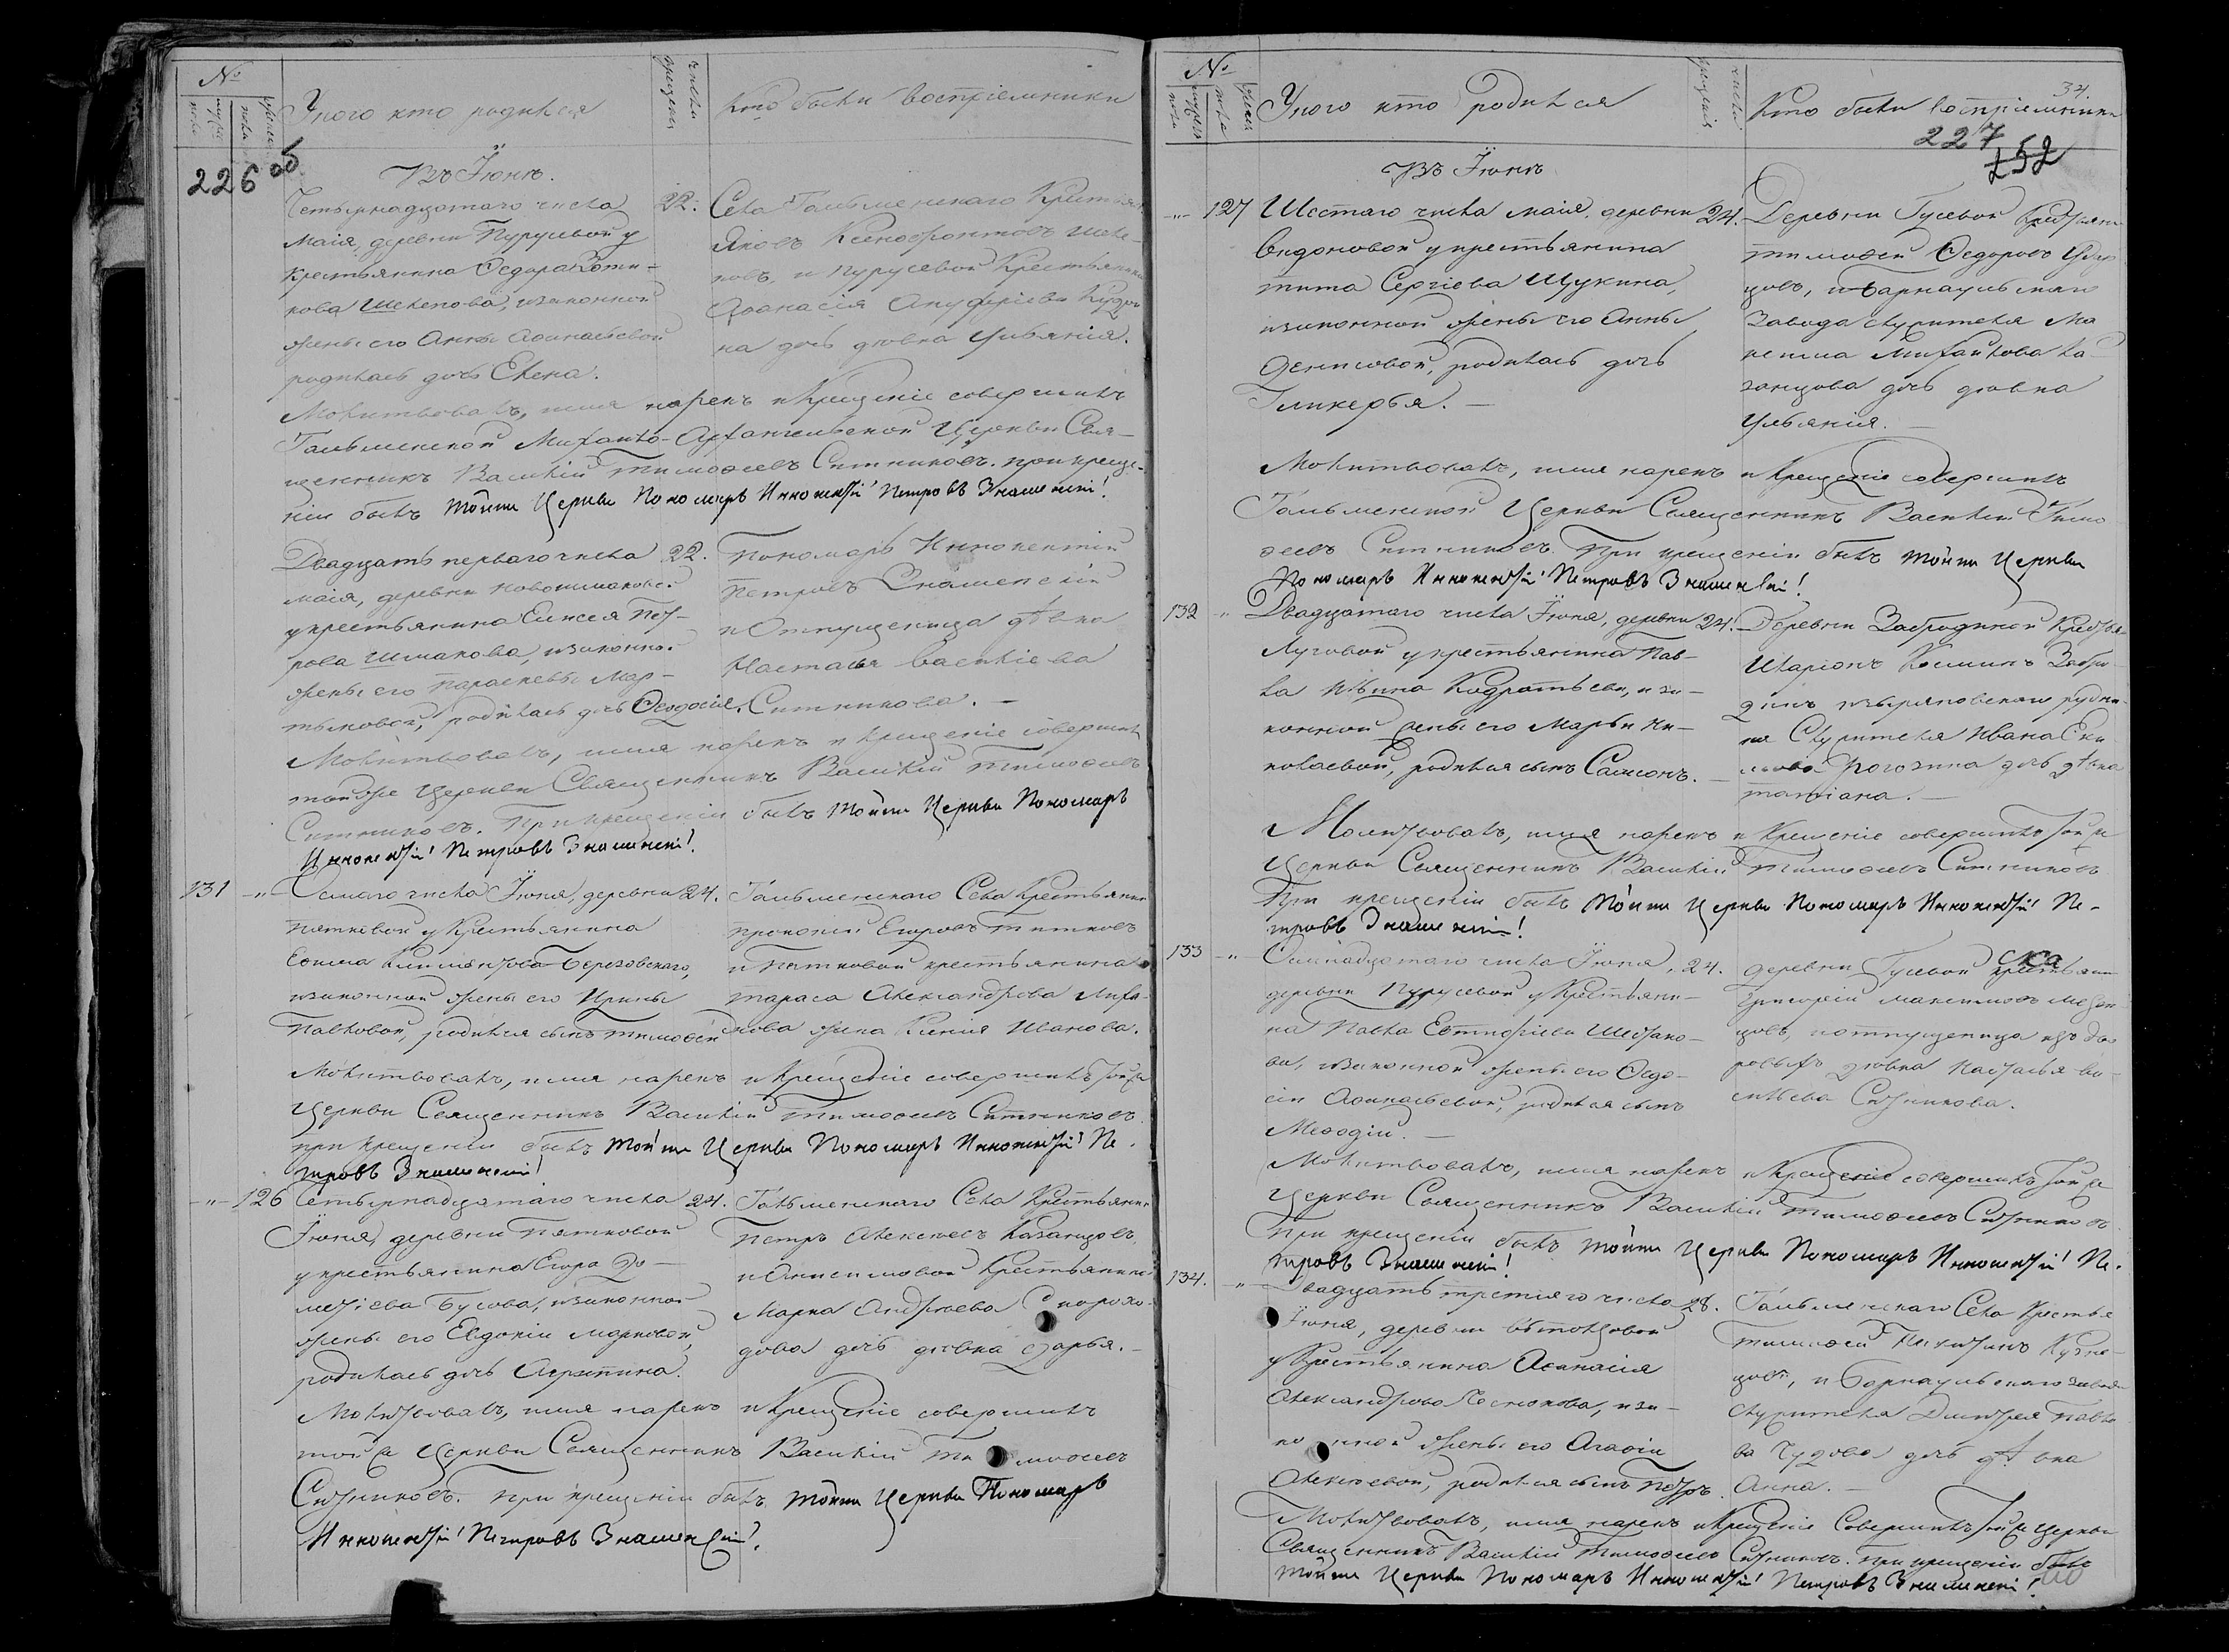 №
мужеска пола
женска пола
У кого кто родился
число крещенія
Кто были воспріемники
226 об
Въ Іюнѣ.
Четырнадцатаго числа
маія, деревни Пурусевой у
крестьянина Ѳедора
Шелепова, изаконной
жены его Анны Аѳанасьевой
родилась дочь Елена.
22.
Села Тальменскаго Крестьян
Яковъ Ксенофонтовъ Шеле-
повъ, и Пурусевой Крестьянина
Аѳанасія Ануфріева
на дочь дѣвка Ульянія.
Молитвовалъ, имя нарекъ и Крещеніе совершилъ
Тальменской Михаило-Архангельской Церкви Свя-
щенникъ Василій Тимоѳеевъ Ситниковъ. При креще-
ніи былъ тойже Церкви Пономарь Иннокентій Петровъ Знаменскій!
Двадцать перваго числа
маія, деревни
у крестьянина Елисея Пет-
рова Шмакова, изаконной
жены его Параскевы Мар-
тыновой, родилась дочь Ѳеодосія.
22.
Пономарь Иннокентій
Петровъ Знаменскій
и Отпущеница дѣвка
Настасья Васильева
Ситникова. —
Молитвовалъ, имя нарекъ и крещеніе совершилъ
тойже Церкви Священникъ Василій Тимоѳеевъ
Ситниковъ. При крещеніи былъ тойже Церкви Пономарь
Иннокентій Петровъ Знаменскій!
131 -"- Седмаго числа Іюня, деревни
Пятковой у Крестьянина
Ефима Климентова Березовскаго,
изаконной жены его Ирины
Павловой, родился сынъ Тимоѳей
24.
Тальменскаго Села Крестьянинъ
Прокопій Егоровъ Титковъ
и Пятковой крестьянина
Тараса Александрова
жена Ксенія Иванова.
Молитвовалъ, имя нарекъ и Крещеніе совершилъ тойже
Церкви Священникъ Василій Тимоѳеевъ Ситниковъ.
при крещеніи былъ тойже Церкви Пономарь Иннокентій Пе-
тровъ Знаменскій!
-"- 126 Четырнадцатаго числа
Іюня, деревни Пятковой
у крестьянина Егора До-
метіева Бусова, изаконной
жены его Евдокіи Марковой,
родилась дочь Агрипина.
24.
Тальменскаго Села Крестьянинъ
Петръ Алексѣевъ Казанцовъ,
и Анисимовой Крестьянина
Марка Андрѣева Скорохо-
дова дочь дѣвка Дарья. —
Молитвовалъ, имя нарекъ и Крещеніе совершилъ
тойже Церкви Священникъ Василій Тимоѳеевъ
Ситниковъ. При крещеніи былъ тойже Церкви Пономарь
Иннокентій Петровъ Знаменскій!
№
мужеска пола
женска пола
У кого кто родился
число крещенія
Кто были воспріемники
34.
227
252
Въ Іюнѣ
-"- 127 Шестаго числа маія, деревни
Видоновой у крестьянина
Тита Сергіева Щукина,
изаконной жены его Анны
Денисовой, родилась дочь
Гликерья. —
24.
Деревни Гусевой Крестьянинъ
Тимоѳей Ѳедоровъ
цовъ, и Барнаульскаго
Завода служителя Ма
Михайлова Ка-
занцова дочь дѣвка
Ульянія. —
Молитвовалъ, имя нарекъ и Крещеніе совершилъ
Тальменской Церкви Священникъ Василій Тимо
ѳеевъ Ситниковъ. При крещеніи былъ тойже Церкви
Пономарь Иннокентій Петровъ Знаменскій!
132 " Двадцатаго числа Іюня, деревни
Луговой у крестьянина Пав-
ла Ильина Кодратьева, иза-
конной жены его Марьи Ни-
колаевой, родился сынъ Сампсонъ. —
24.
Деревни Забродиной Крестья-
Иларіонъ Косминъ Забро-
динъ и зыряновскаго рудни-
ка Служителя Ивана
Рогозина дочь дѣвка
Татіана. —
Молитвовалъ, имя нарекъ и Крещеніе совершилъ тойже
Церкви Священникъ Василій Тимоѳеевъ Ситниковъ
При крещеніи былъ тойже Церкви Пономарь Иннокентій Пе-
тровъ Знаменскій!
133 -"- Осмнадцатаго числа Іюня,
деревни Пурусевой у Крестьяни-
на Павла Евтифіева
ва, изаконной жены его Ѳедо-
сіи Аѳанасьевой, родился сынъ
Меѳодій. —
24.
деревни Гусевой крестьянинъ
Григорій Максимовъ
цовъ, и отпущеница изъ дво
ровыхъ дѣвка Настасья Ва-
сильева Ситникова.
Молитвовалъ, имя нарекъ и Крещеніе совершилъ тойже
Церкви Священникъ Василій Тимоѳеевъ Ситниковъ
При крещеніи былъ тойже Церкви Пономарь Иннокентій Пе-
тровъ Знаменскій!
134. " Двадцать третіяго числа
Іюня, деревни
у Крестьянина Аѳанасія
Александрова Чеснокова, иза-
конной жены его Агафіи
Алексѣевой, родился сынъ Петръ.
28.
Тальменскаго Села Крестья
Тимоѳей Никитинъ Кузне-
цовъ, и Барнаульскаго завода
служителя Дмитрея Павло
ва Чудова дочь дѣвка
Анна. —
Молитвовалъ, имя нарекъ и Крещеніе Совершилъ тойже Церкви
Священникъ Василій Тимоѳеевъ Ситниковъ. При крещеніи былъ
тойже Церкви Пономарь Иннокентій Петровъ Знаменскій!